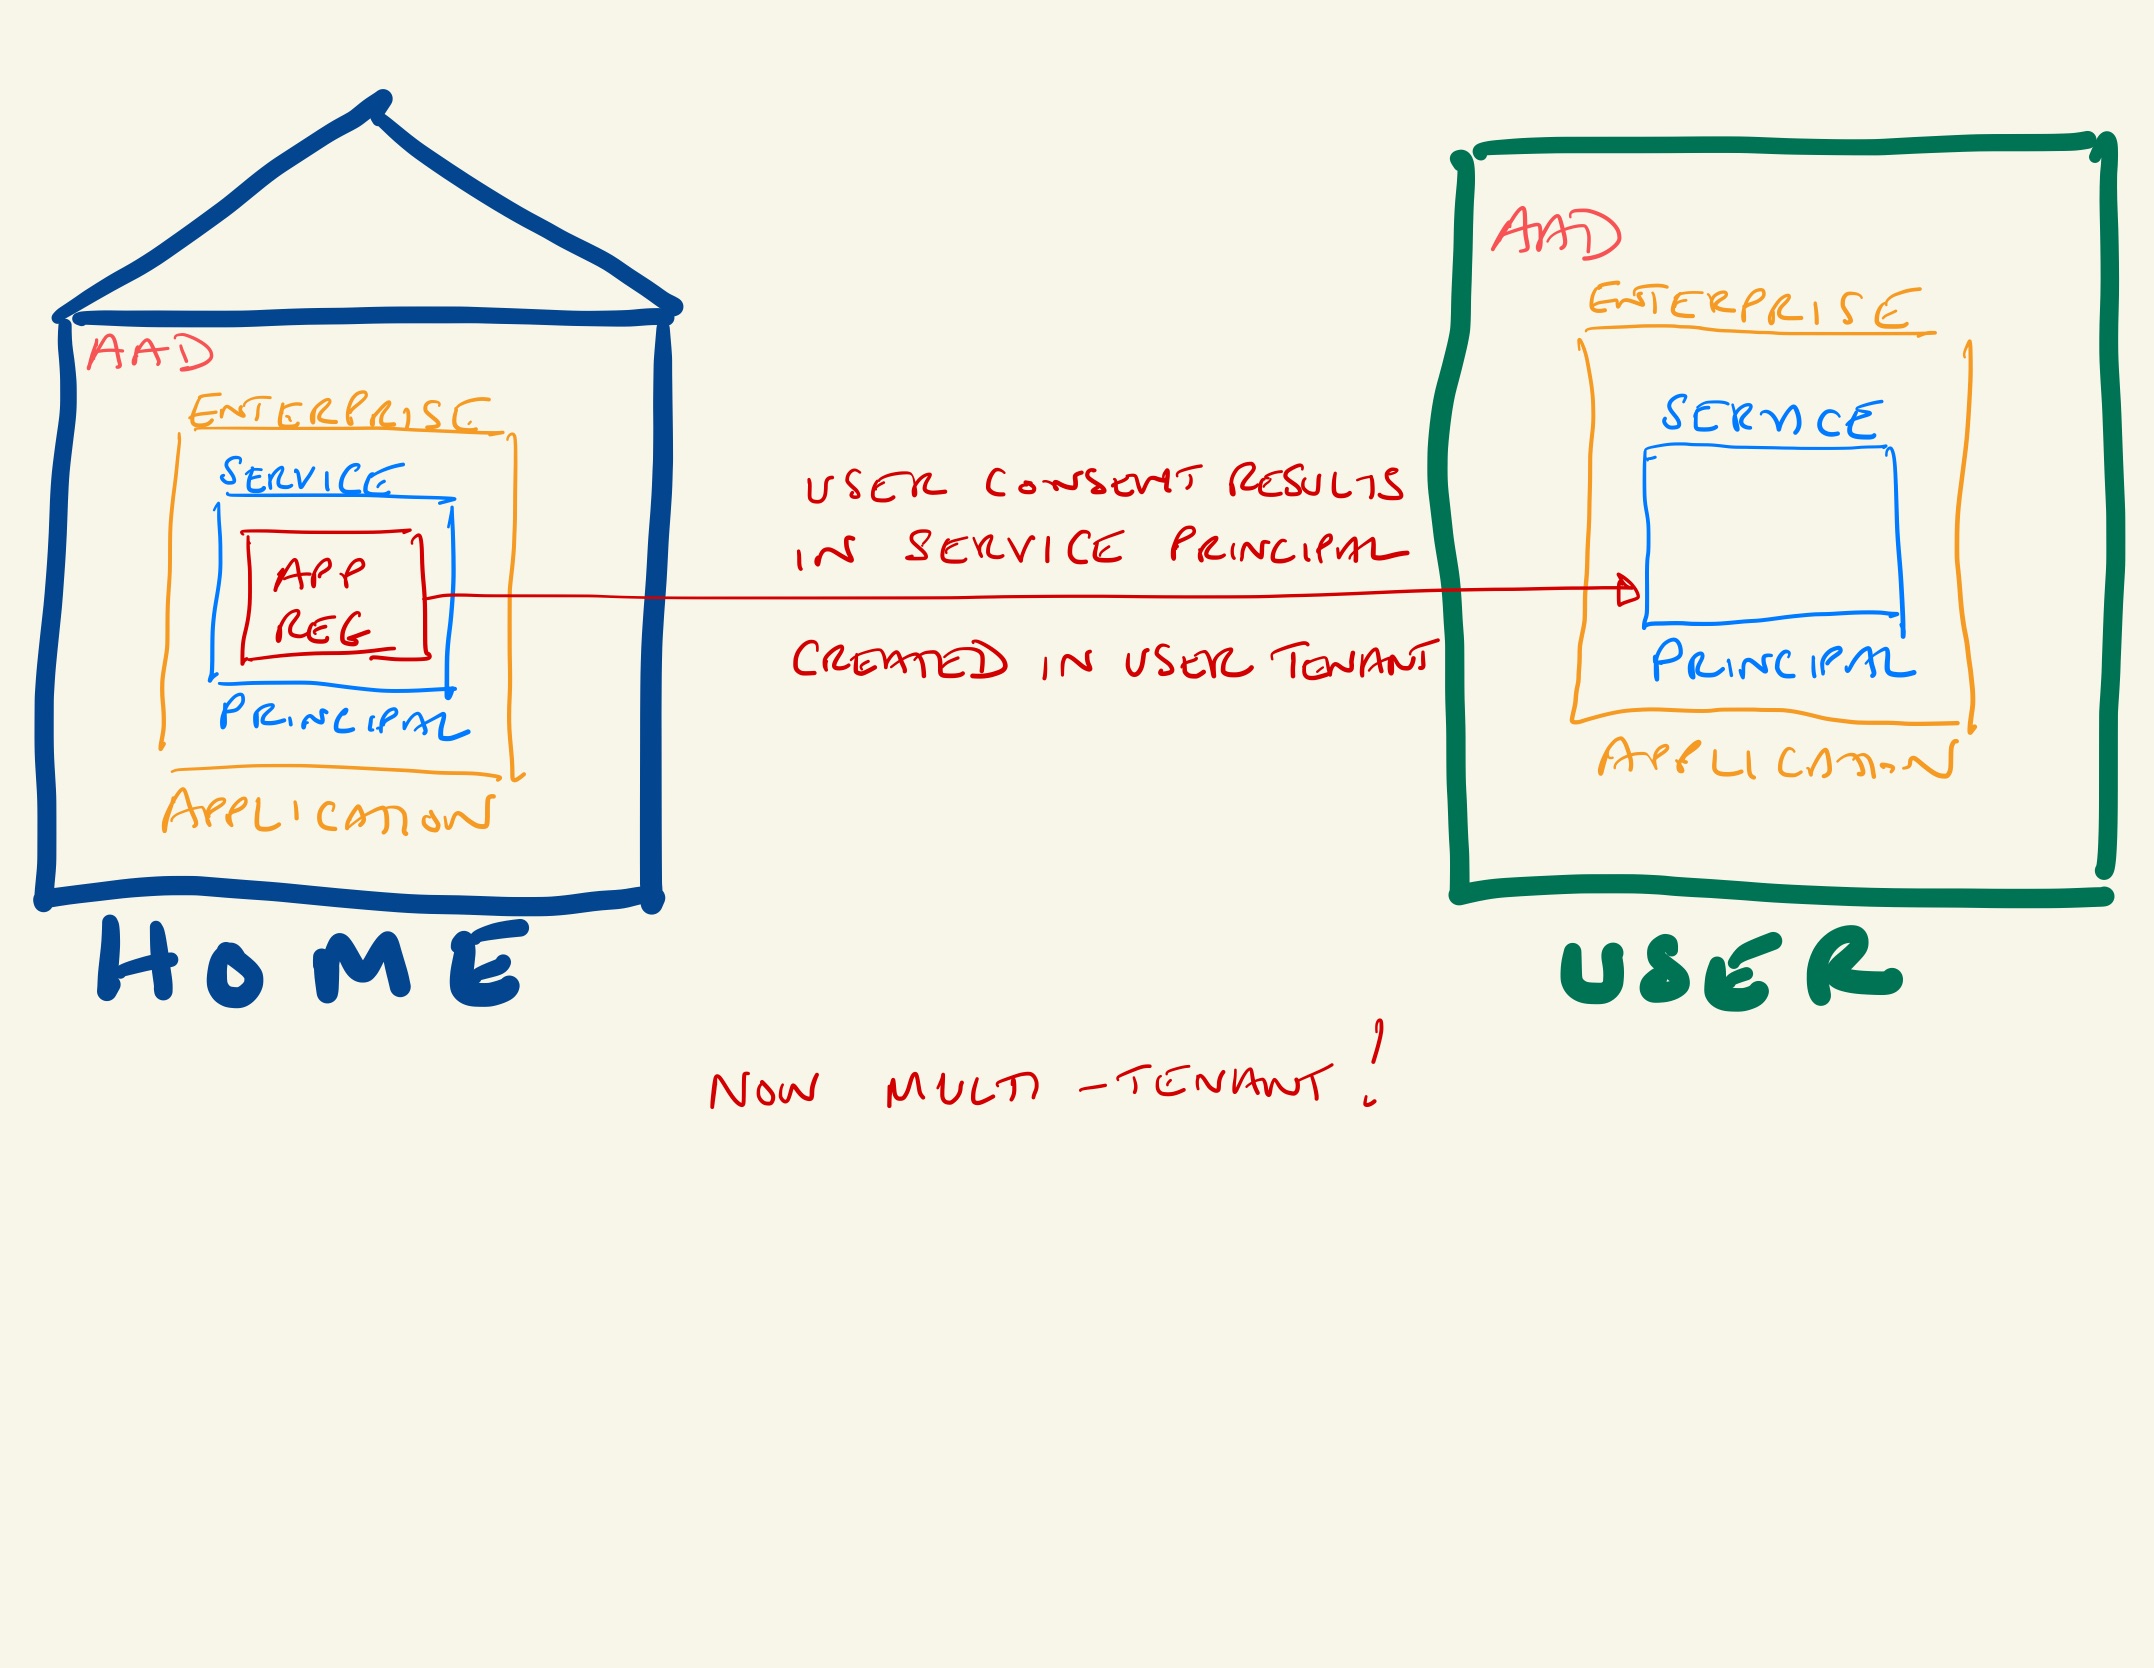 AAD
ENTERPRISE
SERVICE
APP
REG
PRINCIPAL
APPLICATION
HOME
USER CONSENT RESULTS
IN SERVICE PRINCIPAL
CREATED IN USER TENANT
AAD
ENTERPRISE
SERVICE
PRINCIPAL
APPLICATION
USER
NOW MULTI-TENANT!